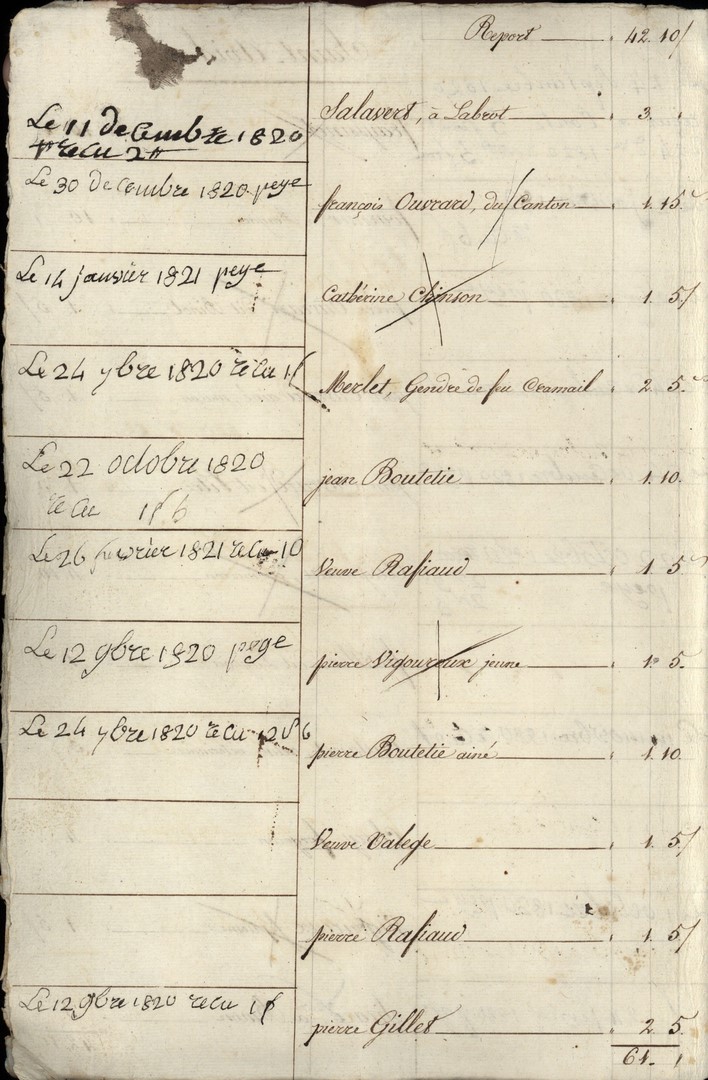 Report 42. 10/
Salavert, à Labrot 3. "
Le 11 decembre 1820
recu 2"
Le 30 decembre 1820 peye
françois Ouvrard, du Canton 1. 15
Le 14 janvier 1821 peye
Cathérine Chinson 1. 5/
Le 24 ybre 1820 recu 1f
Merlet, Gendre de feu Dramail 2 5.
Le 22 octobre 1820
jean Boutetie 1. 10.
recu 1f 6
Le 26 fevrier 1821 recu 10
Veuve Rafiaud 1 5
Le 12 9bre 1820 peye
pierre Vigoureux jeune 1. 5.
Le 24 ybre 1820 recu 12f 6
pierre Boutetie ainé 1. 10.
Veuve Valege 1. 5/
pierre Rafiaud 1. 5/
Le 12 9bre 1820 recu 1f
pierre Gillet 2 5.
61. "